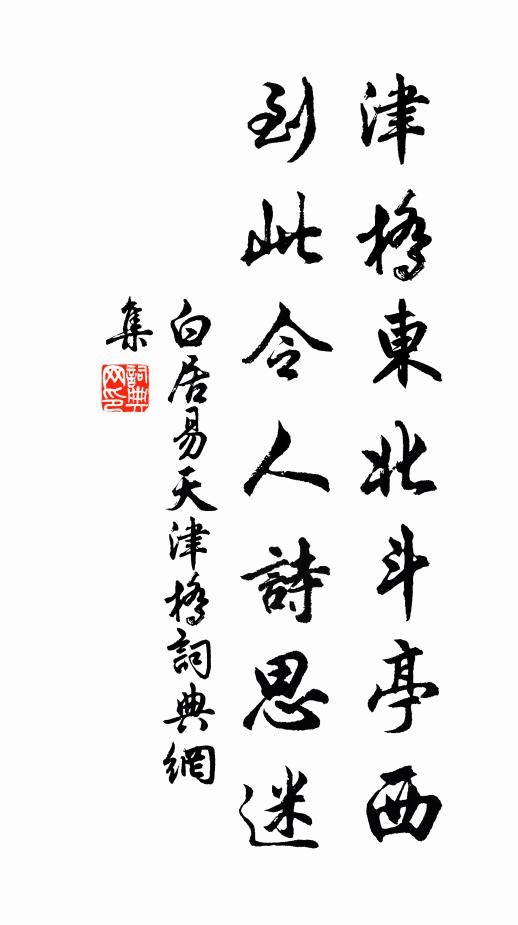 津橋東北斗亭西
到此令人詩思迷
白居易天津橋詞典網
集
詞典网印